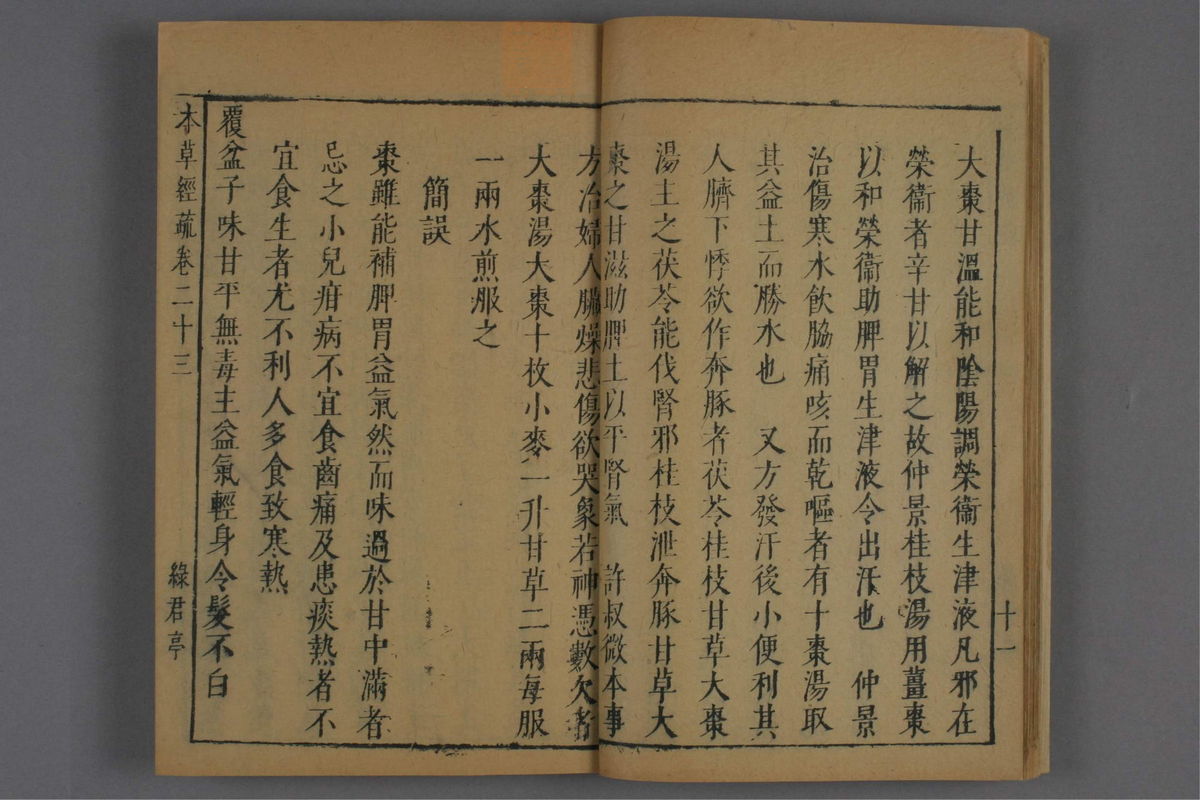 十一
大棗甘溫能和陰陽調榮衞生津液凡邪在
榮衞者辛甘以解之故仲景桂枝湯用薑棗
以和榮衞助脾胃生津液令出汗也　仲景
治傷寒水飲脇痛咳而乾嘔者有十棗湯取
其益土而勝水也　又方發汗後小便利其
人臍下悸欲作奔豚者茯苓桂枝甘草大棗
湯主之茯苓能伐腎邪桂枝泄奔豚甘草大
棗之甘滋助脾土以平腎氣　許叔微本事
方治婦人臟燥悲傷欲哭象若神憑數欠者
大棗湯大棗十枚小麥一升甘草二兩每服
一兩水煎服之
簡誤
棗雖能補脾胃益氣然而味過於甘中滿者
忌之小兒疳病不宜食齒痛及患痰熱者不
宜食生者尤不利人多食致寒熱
覆盆子味甘平無毒主益氣輕身令髮不白
本草經疏卷二十三　綠君亭